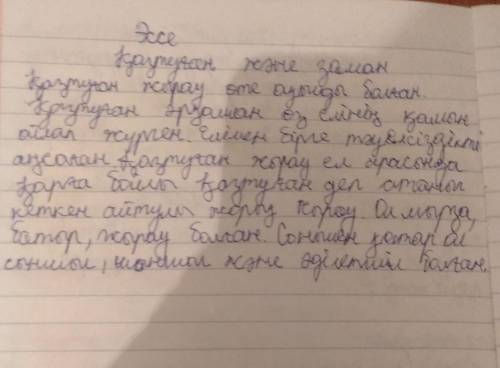 Эссе
Қазтуған және заман
Қазтуған жырау өте ақылды болған.
Қазтуған әрқашан өз елінің қамын
ойлап жүрген. Елімен бірге тәуелсіздікті
аңсаған Қазтуған жырау ел арасында
Қарға бойлы Қазтуған деп аталып
кеткен айтулы жорық жырау Ол мырза,
батыр, жырау болған. Сонымен қатар ол
сыншыл, шыншыл және әділетшіл болған.